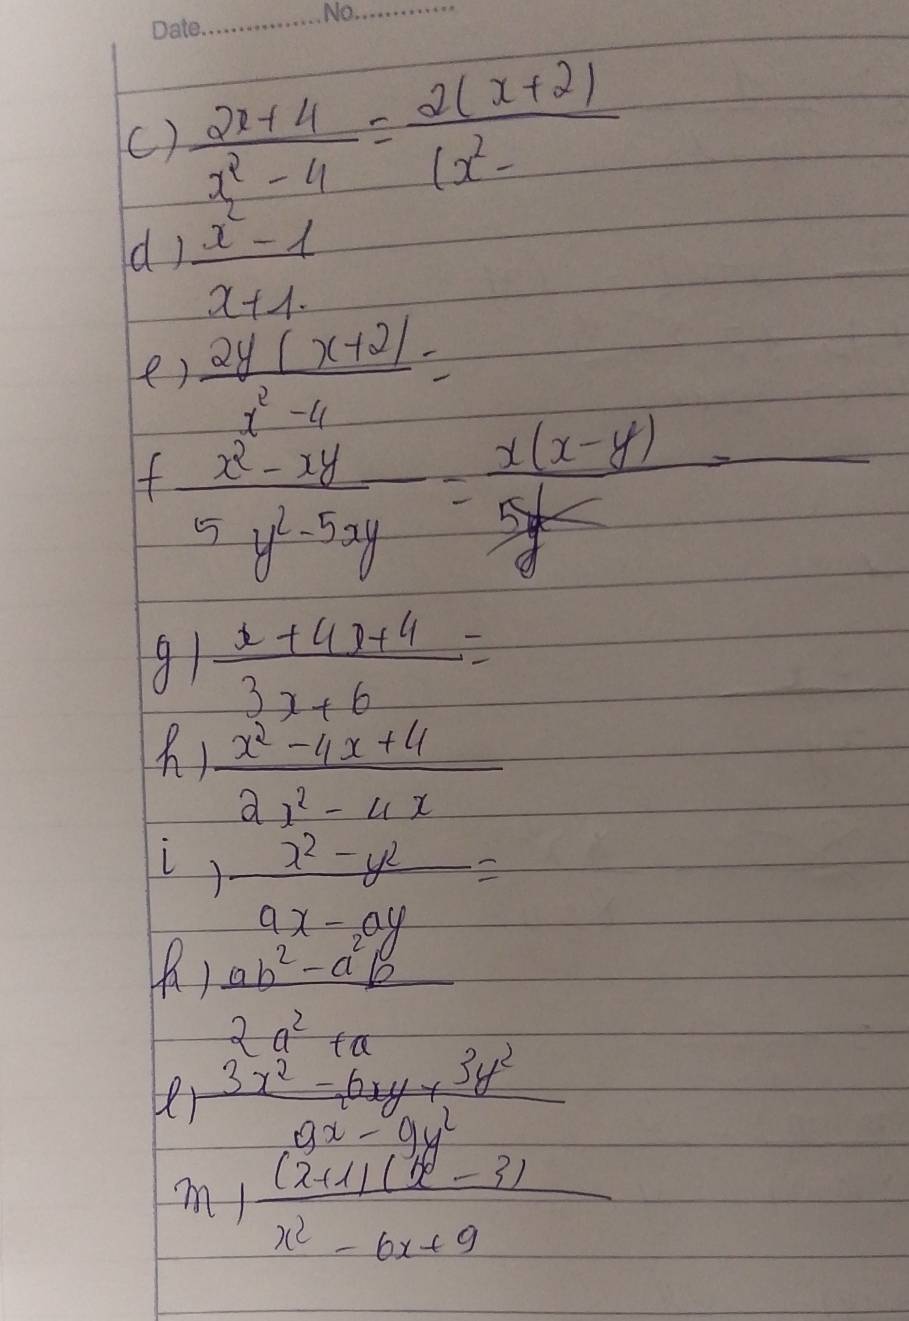 Date................No.............
c) \frac{2x+4}{x^2-4} = \frac{2(x+2)}{(x^2-}
d) \frac{x^2-1}{x+1.}
e) \frac{2y(x+2)}{x^2-4} =
f \frac{x^2-xy}{5y^2-5xy} = \frac{x(x-y)}{5y} =
g) \frac{x+4x+4}{3x+6} =
h) \frac{x^2-4x+4}{2x^2-4x}
i) \frac{x^2-y^2}{ax-ay} =
k) \frac{ab^2-a^2b}{2a^2+a}
l) \frac{3x^2-6xy+3y^2}{9x-9y^2}
m) \frac{(x+1)(x-3)}{x^2-6x+9}